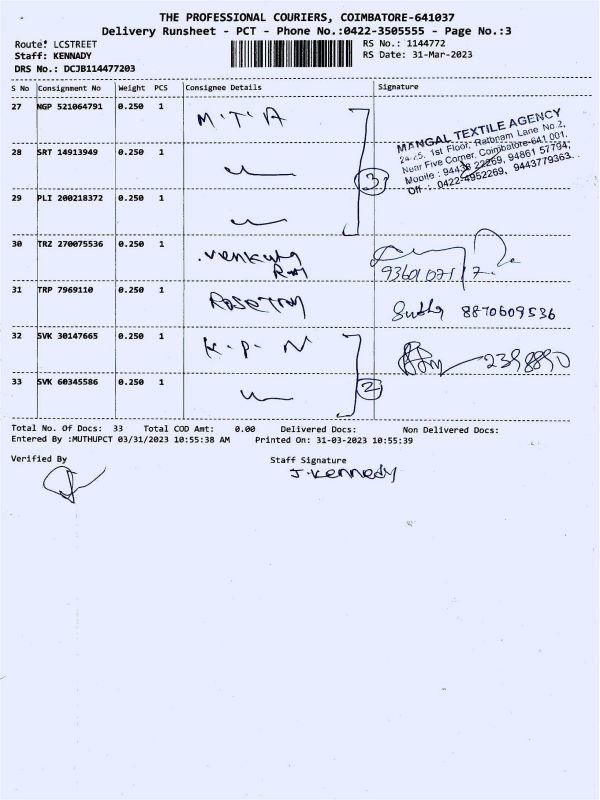 THE PROFESSIONAL COURIERS, COIMBATORE-641037
Delivery Runsheet - PCT - Phone No.:0422-3505555 - Page No.:3
Route: LCSTREET RS No.: 1144772
Staff: KENNADY RS Date: 31-Mar-2023
DRS No.: DCJB114477203
S No Consignment No Weight PCS Consignee Details Signature
27 NGP 521064791 0.250 1 M.T.A
MANGAL TEXTILE AGENCY
24-25, 1st Floor, Rathnam Lane No.2,
Near Five Corner, Coimbatore-641 001.
Mobile : 94438 22269, 94861 57794,
Off : 0422-4952269, 9443779363
28 SRT 14913949 0.250 1
3
29 PLI 200218372 0.250 1
30 TRZ 270075536 0.250 1 Venkura
Ram 93601 07117
31 TRP 7969110 0.250 1 Rosetray Sudha 8870609536
32 SVK 30147665 0.250 1 K.P.N 2398890
33 SVK 60345586 0.250 1 2
Total No. Of Docs: 33 Total COD Amt: 0.00 Delivered Docs: Non Delivered Docs:
Entered By :MUTHUPCT 03/31/2023 10:55:38 AM Printed On: 31-03-2023 10:55:39
Verified By Staff Signature
J. Kennedy